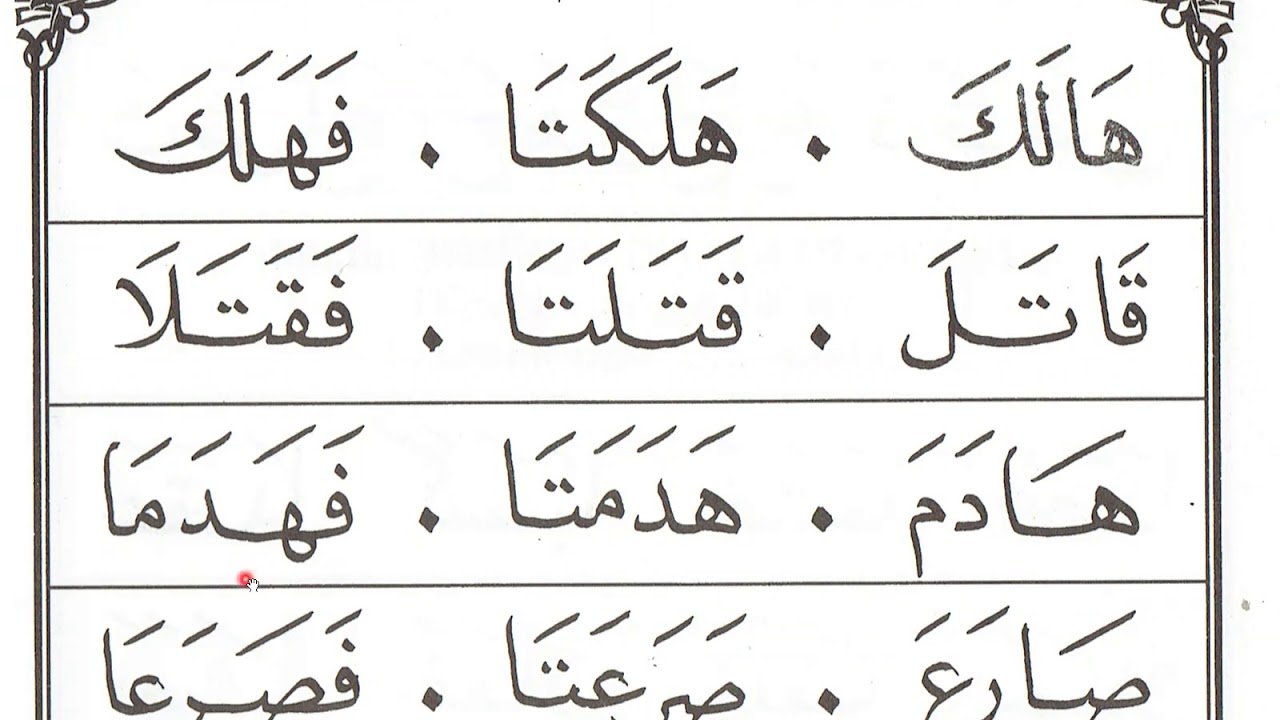 هَالَكَ . هَلَكَتَا . فَهَلَكَ
قَاتَلَ . قَتَلَتَا . فَقَتَلَا
هَادَمَ . هَدَمَتَا . فَهَدَمَا
صَارَعَ . صَرَعَتَا . فَصَرَعَا